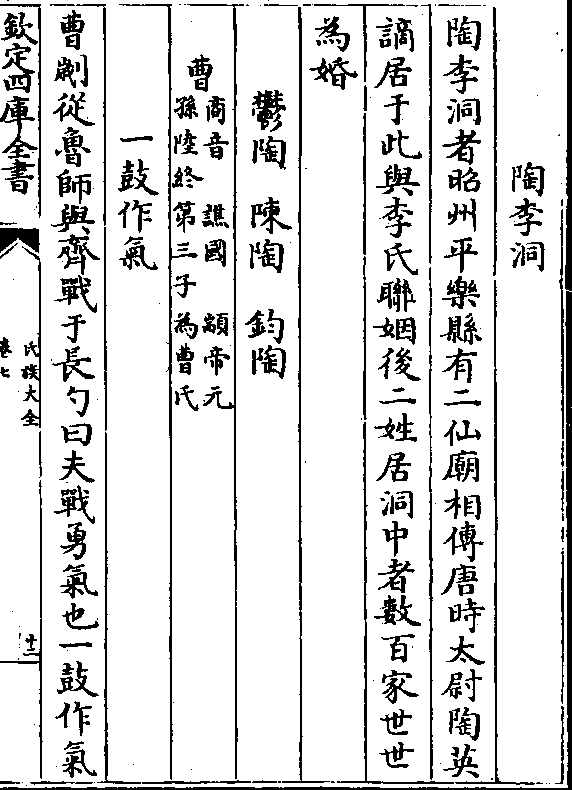 陶李洞
陶李洞者昭州平樂縣有二仙廟相傳唐時太尉陶英
謫居于此與李氏聯姻後二姓居洞中者數百家世世
為婚
鬱陶　陳陶　鈞陶
曹
商音　譙國　顓帝元
孫陸終第三子為曹氏
一鼓作氣
曹劌從魯師與齊戰于長勺曰夫戰勇氣也一鼓作氣
欽定四庫全書
氏族大全
卷七
十二